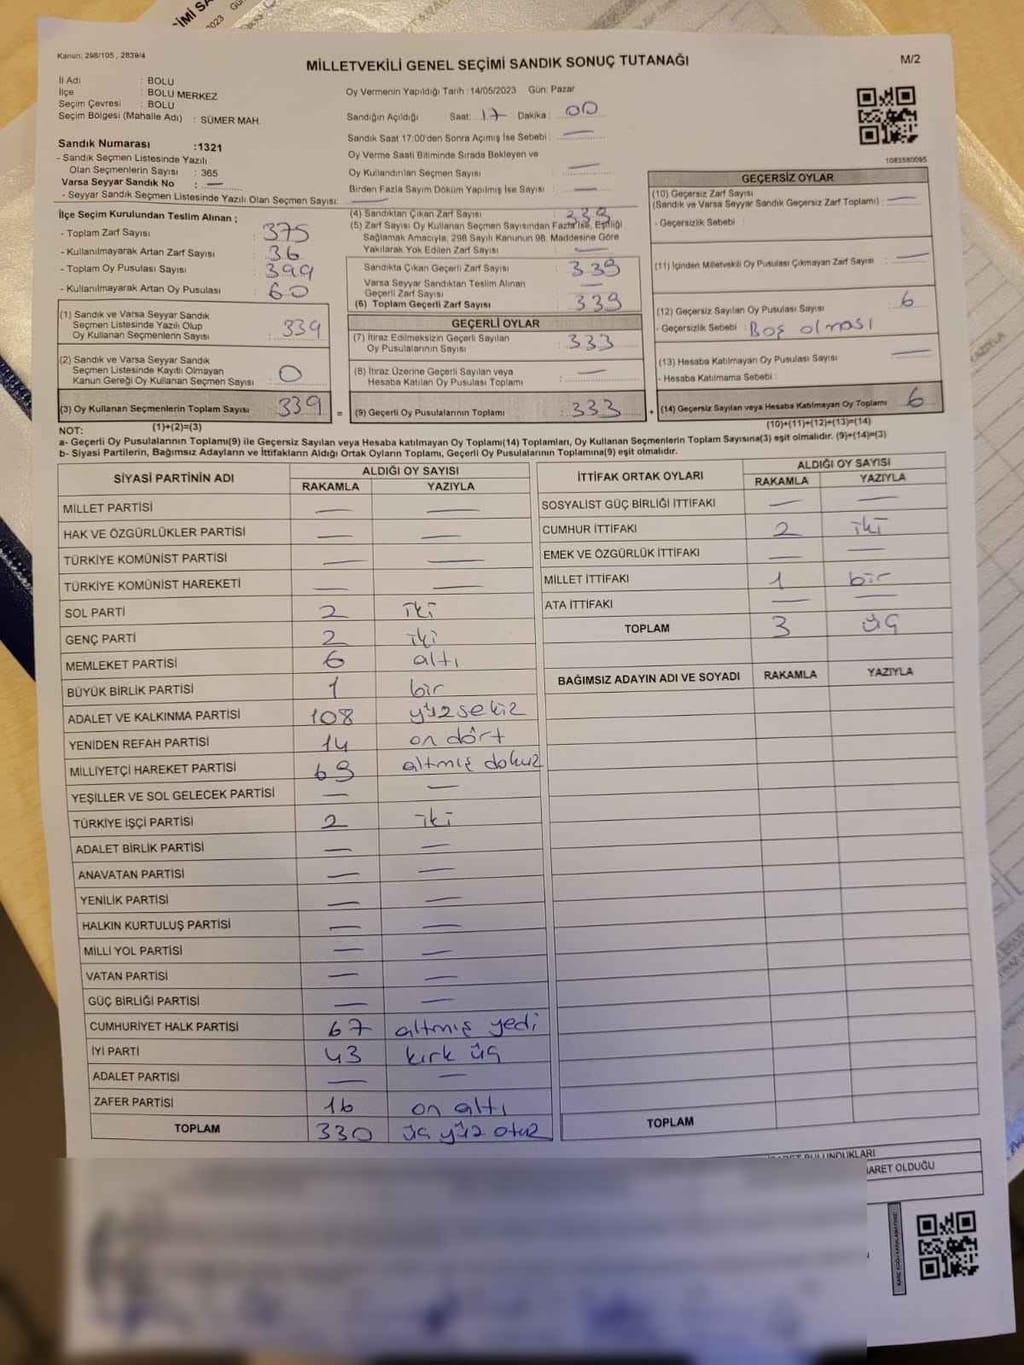 Kanun: 298/105 , 2839/4
MİLLETVEKİLİ GENEL SEÇİMİ SANDIK SONUÇ TUTANAĞI
M/2
İl Adı : BOLU
İlçe : BOLU MERKEZ
Seçim Çevresi : BOLU
Seçim Bölgesi (Mahalle Adı) : SÜMER MAH.
Sandık Numarası :1321
- Sandık Seçmen Listesinde Yazılı
Olan Seçmenlerin Sayısı : 365
Varsa Seyyar Sandık No : —
- Seyyar Sandık Seçmen Listesinde Yazılı Olan Seçmen Sayısı: —
Oy Vermenin Yapıldığı Tarih :14/05/2023 Gün: Pazar
Sandığın Açıldığı Saat: 17 Dakika : 00
Sandık Saat 17:00'den Sonra Açımış İse Sebebi : —
Oy Verme Saati Bitiminde Sırada Bekleyen ve
Oy Kullandırılan Seçmen Sayısı : —
Birden Fazla Sayım Döküm Yapılmış İse Sayısı : —
1083580095
İlçe Seçim Kurulundan Teslim Alınan ;
- Toplam Zarf Sayısı : 375
- Kullanılmayarak Artan Zarf Sayısı : 36
- Toplam Oy Pusulası Sayısı : 399
- Kullanılmayarak Artan Oy Pusulası : 60
(1) Sandık ve Varsa Seyyar Sandık
Seçmen Listesinde Yazılı Olup
Oy Kullanan Seçmenlerin Sayısı : 339
(2) Sandık ve Varsa Seyyar Sandık
Seçmen Listesinde Kayıtlı Olmayan
Kanun Gereği Oy Kullanan Seçmen Sayısı : 0
(3) Oy Kullanan Seçmenlerin Toplam Sayısı : 339
(1)+(2)=(3)
(4) Sandıktan Çıkan Zarf Sayısı : 339
(5) Zarf Sayısı Oy Kullanan Seçmen Sayısından Fazla İse, Eşitliği
Sağlamak Amacıyla, 298 Sayılı Kanunun 98. Maddesine Göre
Yakılarak Yok Edilen Zarf Sayısı : —
Sandıkta Çıkan Geçerli Zarf Sayısı : 339
Varsa Seyyar Sandıktan Teslim Alınan
Geçerli Zarf Sayısı : —
(6) Toplam Geçerli Zarf Sayısı : 339
GEÇERLİ OYLAR
(7) İtiraz Edilmeksizin Geçerli Sayılan
Oy Pusulalarının Sayısı : 333
(8) İtiraz Üzerine Geçerli Sayılan veya
Hesaba Katılan Oy Pusulası Toplamı : —
= (9) Geçerli Oy Pusulalarının Toplamı : 333
GEÇERSİZ OYLAR
(10) Geçersiz Zarf Sayısı
(Sandık ve Varsa Seyyar Sandık Geçersiz Zarf Toplamı) : —
- Geçersizlik Sebebi :
(11) İçinden Milletvekili Oy Pusulası Çıkmayan Zarf Sayısı : —
(12) Geçersiz Sayılan Oy Pusulası Sayısı : 6
- Geçersizlik Sebebi : Boş olması
(13) Hesaba Katılmayan Oy Pusulası Sayısı : —
- Hesaba Katılmama Sebebi :
+ (14) Geçersiz Sayılan veya Hesaba Katılmayan Oy Toplamı : 6
(10)+(11)+(12)+(13)=(14)
NOT:
a- Geçerli Oy Pusulalarının Toplamı(9) ile Geçersiz Sayılan veya Hesaba katılmayan Oy Toplamı(14) Toplamları, Oy Kullanan Seçmenlerin Toplam Sayısına(3) eşit olmalıdır. (9)+(14)=(3)
b- Siyasi Partilerin, Bağımsız Adayların ve İttifakların Aldığı Ortak Oyların Toplamı, Geçerli Oy Pusulalarının Toplamına(9) eşit olmalıdır.
SİYASİ PARTİNİN ADI ALDIĞI OY SAYISI
RAKAMLA YAZIYLA
MİLLET PARTİSİ — —
HAK VE ÖZGÜRLÜKLER PARTİSİ — —
TÜRKİYE KOMÜNİST PARTİSİ — —
TÜRKİYE KOMÜNİST HAREKETİ — —
SOL PARTİ 2 iki
GENÇ PARTİ 2 iki
MEMLEKET PARTİSİ 6 altı
BÜYÜK BİRLİK PARTİSİ 1 bir
ADALET VE KALKINMA PARTİSİ 108 yüzsekiz
YENİDEN REFAH PARTİSİ 14 on dört
MİLLİYETÇİ HAREKET PARTİSİ 69 altmış dokuz
YEŞİLLER VE SOL GELECEK PARTİSİ — —
TÜRKİYE İŞÇİ PARTİSİ 2 iki
ADALET BİRLİK PARTİSİ — —
ANAVATAN PARTİSİ — —
YENİLİK PARTİSİ — —
HALKIN KURTULUŞ PARTİSİ — —
MİLLİ YOL PARTİSİ — —
VATAN PARTİSİ — —
GÜÇ BİRLİĞİ PARTİSİ — —
CUMHURİYET HALK PARTİSİ 67 altmış yedi
İYİ PARTİ 43 kırk üç
ADALET PARTİSİ — —
ZAFER PARTİSİ 16 on altı
TOPLAM 330 üç yüz otuz
İTTİFAK ORTAK OYLARI ALDIĞI OY SAYISI
RAKAMLA YAZIYLA
SOSYALİST GÜÇ BİRLİĞİ İTTİFAKI — —
CUMHUR İTTİFAKI 2 iki
EMEK VE ÖZGÜRLÜK İTTİFAKI — —
MİLLET İTTİFAKI 1 bir
ATA İTTİFAKI — —
TOPLAM 3 üç
BAĞIMSIZ ADAYIN ADI VE SOYADI RAKAMLA YAZIYLA
TOPLAM